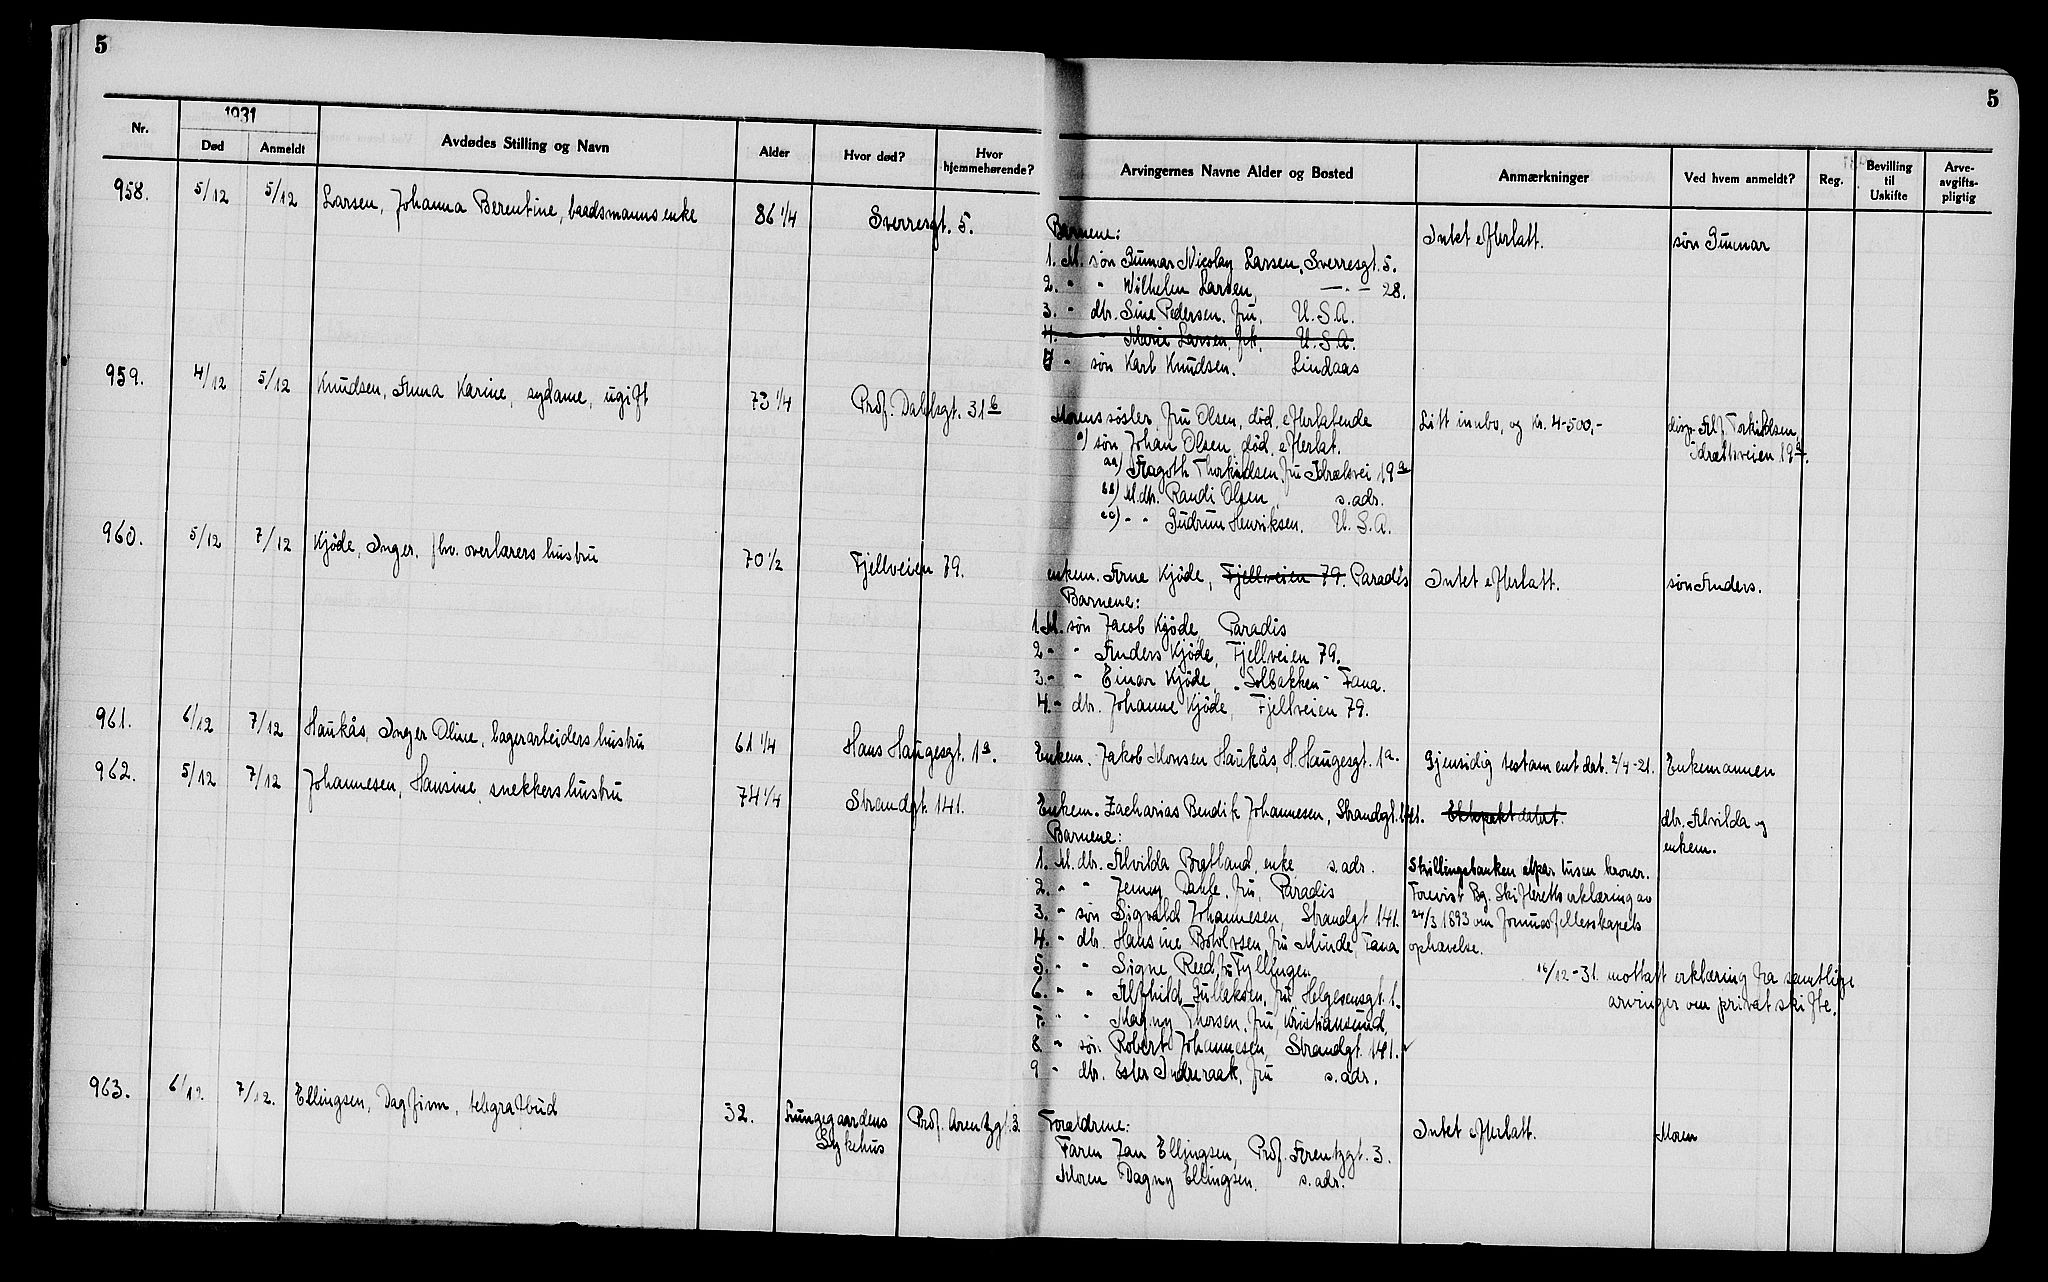 5
5
Nr.
1931
Død
Anmeldt
Avdødes Stilling og Navn
Alder
Hvor død?
Hvor hjemmehørende?
Arvingernes Navne Alder og Bosted
Anmærkninger
Ved hvem anmeldt?
Reg.
Bevilling til Uskifte
Arve-avgifts-pligtig
958. 5/12 5/12 Larsen, Johanna Berentine, baadsmanns enke 86 1/4 Sverresgt. 5.
Barnene: Intet efterlatt. søn Gunnar
1. M. søn Gunnar Nicolay Larsen, Sverresgt. 5.
2. " " Wilhelm Larsen, —"— 28.
3. " dtr. Sine Pedersen, fru, U.S.A.
4. " " Marie Larsen, frk, U.S.A.
" søn Karl Knudsen. Lindaas
959. 4/12 5/12 Knudsen, Anna Karine, sydame, ugift 73 1/4 Prof. Dahlsgt. 31 b
Morens søster, fru Olsen, død, efterlatende Litt innbo, og kr. 4-500,- disp. Alf Torkildsen,
a) søn Johan Olsen, død, efterlat. Idrætsveien 19 a.
aa) Aagoth Thorkildsen, fru Idrætsvei 19 a
bb) M. dtr. Randi Olsen, s. adr.
cc) " " Gudrun Henriksen. U.S.A.
960. 5/12 7/12 Kjøde, Inger, fhv. overlærers hustru 70 1/2 Fjellveien 79.
enkem. Arne Kjøde, Fjellveien 79. Paradis Intet efterlatt. søn Anders.
Barnene:
1 M. søn Jacob Kjøde, Paradis
2 " " Anders Kjøde, Fjellveien 79.
3. " " Einar Kjøde, "Solbakken" Fana.
4. " dtr. Johanne Kjøde, Fjellveien 79.
961. 6/12 7/12 Haukås, Inger Oline, lagerarbeiders hustru 61 1/4 Hans Haugesgt. 1 a.
Enkem. Jakob Monsen Haukås, H. Haugesgt. 1 a. Gjensidig testament dat. 2/4-21. Enkemannen
962. 5/12 7/12 Johannesen, Hansine, snekkers hustru 74 1/4 Strandgt 141.
Enkem. Zacharias Bendik Johannesen, Strandgt. 141. Ektepakt datert. dtr. Alvilda og
Barnene: enkem.
1. M. dtr. Alvilda Bratland, enke s. adr. Skillingsbanken et par tusen kroner.
2. " " Jenny Dahle, fru, Paradis Forevist Bg. Skifteretts erklæring av
3. " søn Sigvald Johannesen, Strandgt 141. 24/3 1893 om formuesfellesskapets
4. " dtr. Hansine Botolvsen, fru Minde, Fana ophævelse.
5. " " Signe Reed, fru Fyllingen 16/12-31. mottatt erklæring fra samtlige
6. " " Alfhild Gullaksen, fru Helgesensgt. 1. arvinger om privat skifte.
7. " " Magny Thorsen, fru Kristiansund,
8 " søn Robert Johannesen, Strandgt. 141.
9 " dtr. Ester Indreraak, fru s. adr.
963. 6/12. 7/12. Ellingsen, Dag Finn, telegrafbud 32. Pungegaardens Sykehus Prof. Arentzgt. 3.
Forældrene: Intet efterlatt. Moren
Faren Jan Ellingsen, Prof. Arentzgt. 3.
Moren Dagny Ellingsen. s. adr.